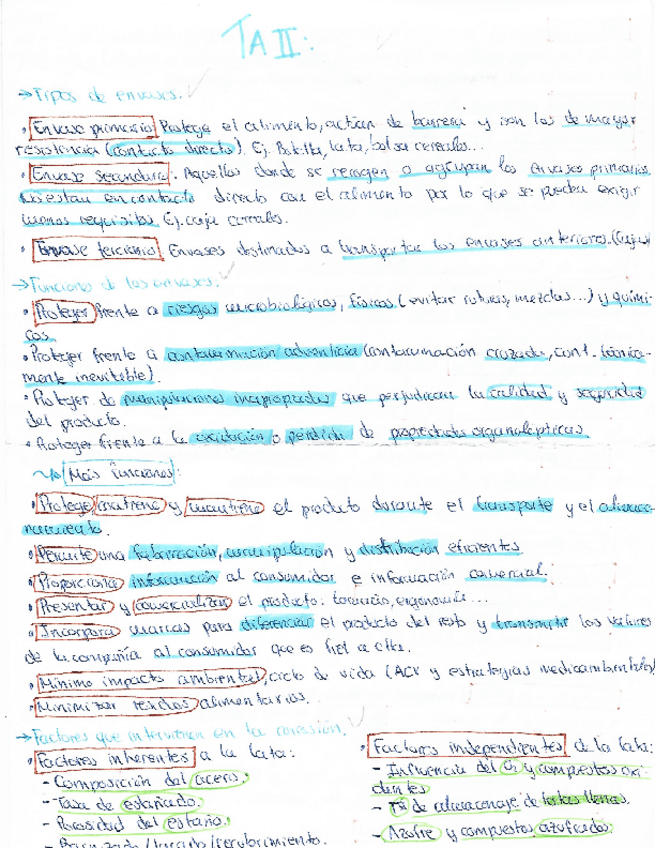 TA II:
→Tipos de envases.
• Envase primario: Protege el alimento, actúan de barrera y son los de mayor
resistencia (contacto directo). Ej. Botella, lata, bolsa cereales...
• Envase secundario. Aquellos donde se recogen o agrupan los envases primarios.
No están en contacto directo con el alimento por lo que se pueden exigir
menos requisitos. Ej. caja cereales.
• Envase terciario. Envases destinados a transportar los envases anteriores. (Cajas)
→Funciones de los envases.
• Proteger frente a riesgos microbiológicos, físicos (evitar roturas, mezclas...) y quími-
cos.
• Proteger frente a contaminación adventicia (contaminación cruzada, cont. técnica-
mente inevitable).
• Proteger de manipulaciones inapropiadas que perjudican la calidad y seguridad
del producto.
• Proteger frente a la oxidación o pérdida de propiedades organolépticas.
Más funciones:
• Protege, contiene y mantiene el producto durante el transporte y el almace-
namiento.
• Permite una fabricación, manipulación y distribución eficientes
• Proporciona información al consumidor e información comercial.
• Presentar y comercializar el producto: tamaño, ergonomía...
• Incorpora marcas para diferenciar el producto del resto y transmitir los valores
de la compañía al consumidor que es fiel a ellas.
• Mínimo impacto ambiental, ciclo de vida (ACV y estrategias medioambientales)
• Minimizar residuos alimentarios.
→Factores que intervienen en la corrosión.
• Factores inherentes a la lata:
- Composición del acero.
- Tasa de estañado.
- Porosidad del estaño.
- Barnizado/lacado/recubrimiento.
• Factores independientes de la lata:
- Influencia del O₂ y compuestos oxi-
dantes
- Tª de almacenaje de latas llenas.
- Azufre y compuestos azufrados.